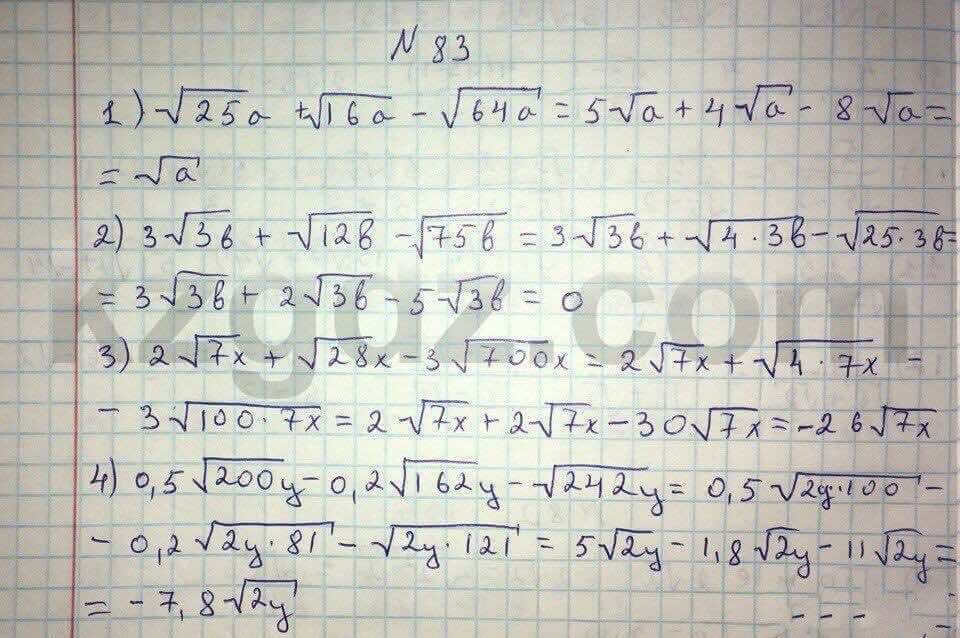 N 83
1) √25a + √16a - √64a = 5√a + 4√a - 8√a =
= √a
2) 3√3b + √12b - √75b = 3√3b + √4·3b - √25·3b =
= 3√3b + 2√3b - 5√3b = 0
kzgdz.com
3) 2√7x + √28x - 3√700x = 2√7x + √4·7x -
- 3√100·7x = 2√7x + 2√7x - 30√7x = -26√7x
4) 0,5√200y - 0,2√162y - √242y = 0,5√2y·100 -
- 0,2√2y·81 - √2y·121 = 5√2y - 1,8√2y - 11√2y =
= -7,8√2y